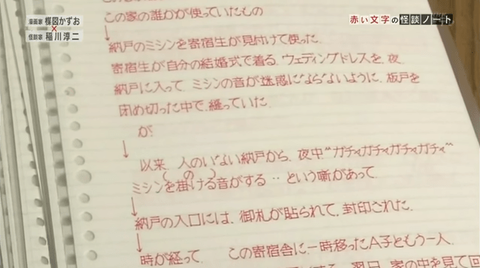 漫画家 楳図かずお
×
怪談家 稲川淳二
赤い文字の怪談ノート
この家の誰かが使っていたもの
↓
納戸のミシンを寄宿生が見付けて使った。
寄宿生が自分の結婚式で着る、ウェディングドレスを、夜、
納戸に入って ミシンの音が迷惑にならないように、板戸を
閉め切った中で、縫っていた。
↓ が
以来、人のいない納戸から、夜中"ガチィガチィガチィガチィ"
(しの)
ミシンを掛ける音がする‥という噺があって
↓
納戸の入口には、御札が貼られて、封印された。
↓
時が経って この寄宿舎に一時移ったA子ともう一人、
する。翌日、家の中を見て回